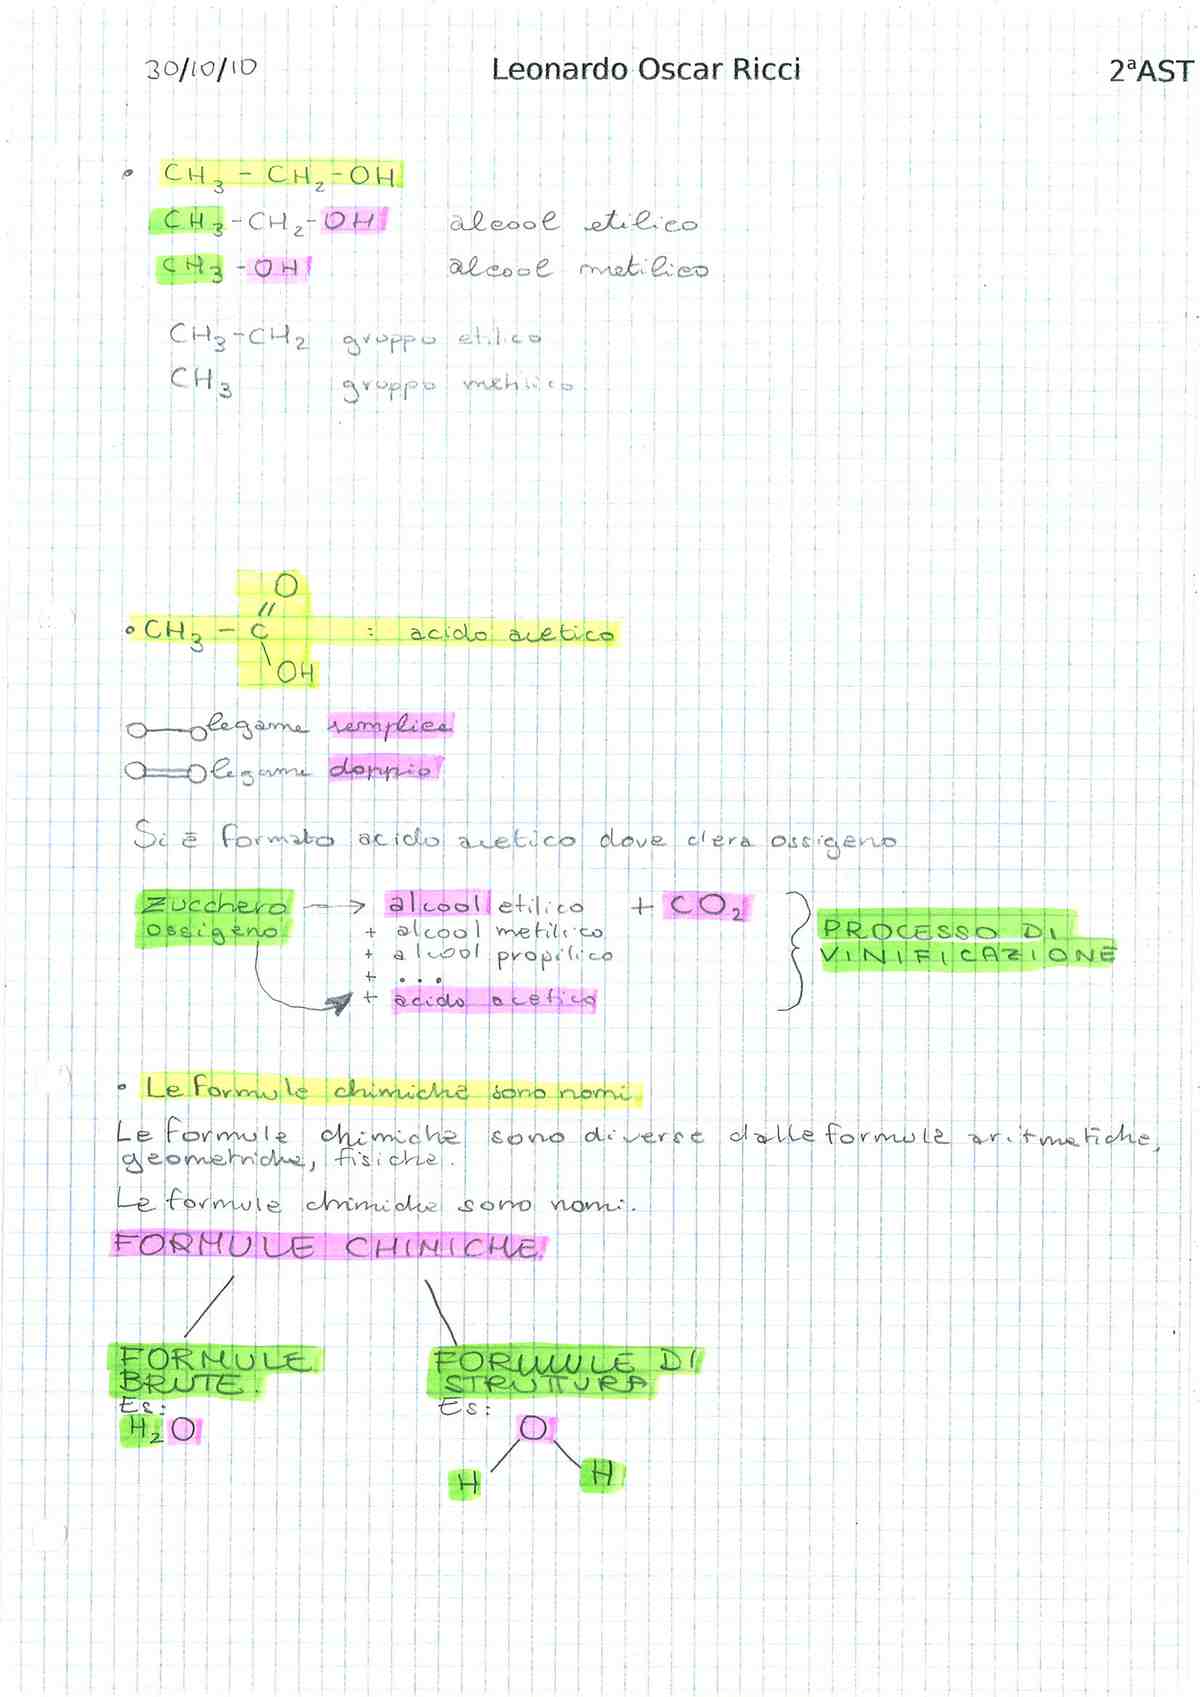 30/10/10 Leonardo Oscar Ricci 2ªAST
• CH₃ – CH₂ – OH
CH₃ – CH₂ – OH alcool etilico
CH₃ – OH alcool metilico
CH₃ – CH₂ gruppo etilico
CH₃ gruppo metilico.
O
//
• CH₃ – C : acido acetico
\
OH
legame semplice
legame doppio
Si è formato acido acetico dove c'era ossigeno
Zucchero → alcool etilico + CO₂
ossigeno + alcool metilico
+ alcool propilico
+ ...
+ acido acetico
PROCESSO DI
VINIFICAZIONE
• Le formule chimiche sono nomi
Le formule chimiche sono diverse dalle formule aritmetiche,
geometriche, fisiche.
Le formule chimiche sono nomi.
FORMULE CHIMICHE
FORMULE FORMULE DI
BRUTE. STRUTTURA
Es: Es:
H₂O O
H H